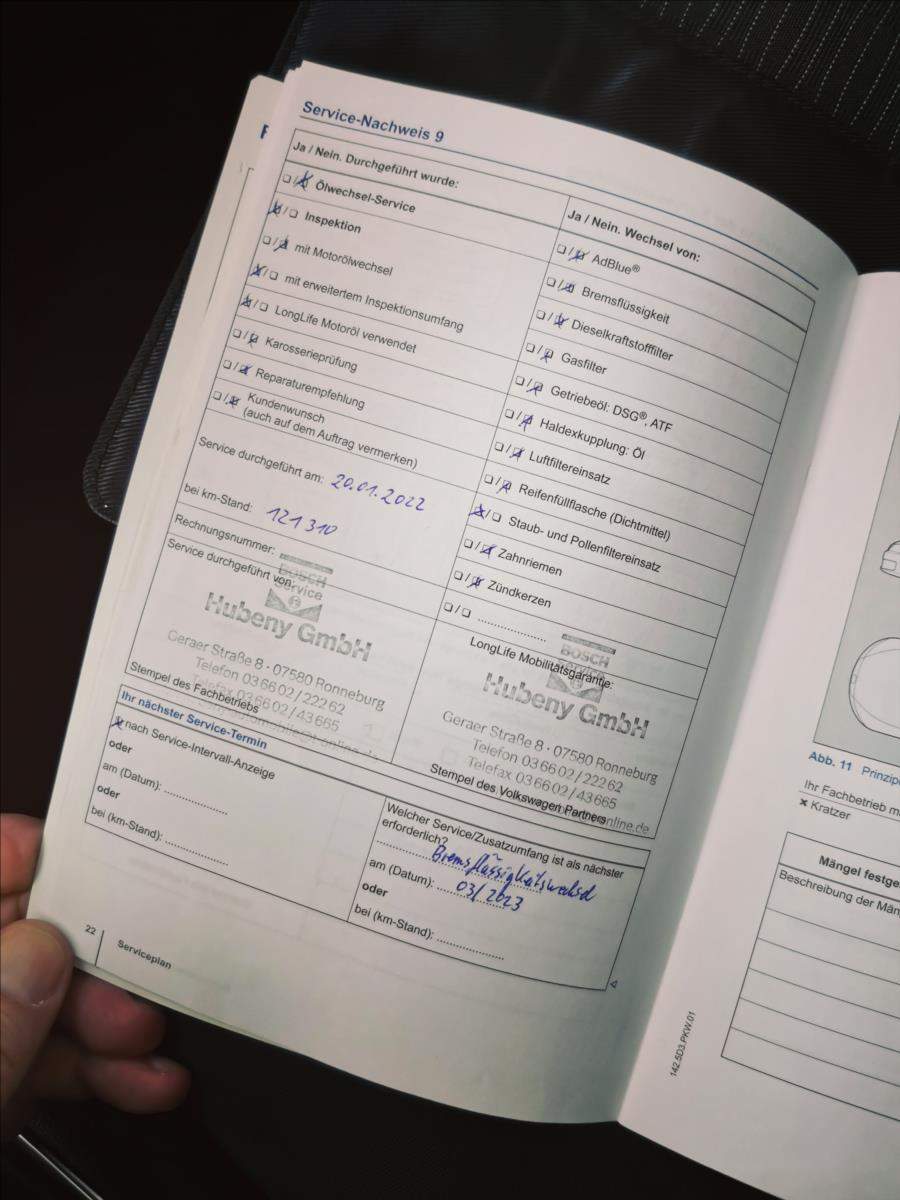 Service-Nachweis 9
Ja / Nein. Durchgeführt wurde:
❏/❏ Ölwechsel-Service
❏/❏ Inspektion
❏/❏ mit Motorölwechsel
❏/❏ mit erweitertem Inspektionsumfang
❏/❏ LongLife Motoröl verwendet
❏/❏ Karosserieprüfung
❏/❏ Reparaturempfehlung
❏/❏ Kundenwunsch
(auch auf dem Auftrag vermerken)
Service durchgeführt am: 20.01.2022
bei km-Stand: 121 310
Rechnungsnummer:
Service durchgeführt von:
BOSCH
Service
Hubeny GmbH
Geraer Straße 8 · 07580 Ronneburg
Telefon 03 66 02 / 222 62
Telefax 03 66 02 / 43 665
Stempel des Fachbetriebs
Ja / Nein. Wechsel von:
❏/❏ AdBlue®
❏/❏ Bremsflüssigkeit
❏/❏ Dieselkraftstofffilter
❏/❏ Gasfilter
❏/❏ Getriebeöl: DSG®, ATF
❏/❏ Haldexkupplung: Öl
❏/❏ Luftfiltereinsatz
❏/❏ Reifenfüllflasche (Dichtmittel)
❏/❏ Staub- und Pollenfiltereinsatz
❏/❏ Zahnriemen
❏/❏ Zündkerzen
❏/❏ ....................
LongLife Mobilitätsgarantie:
BOSCH
Service
Hubeny GmbH
Geraer Straße 8 · 07580 Ronneburg
Telefon 03 66 02 / 222 62
Telefax 03 66 02 / 43 665
Stempel des Volkswagen Partners
Ihr nächster Service-Termin
nach Service-Intervall-Anzeige
oder
am (Datum): ....................
oder
bei (km-Stand): ....................
Welcher Service/Zusatzumfang ist als nächster
erforderlich?
Bremsflüssigkeitswechsel
am (Datum): 03/2023
oder
bei (km-Stand): ....................
22
Serviceplan
Abb. 11 Prinzip
Ihr Fachbetrieb m
× Kratzer
Mängel festge
Beschreibung der Män
142.5D3.PKW.01